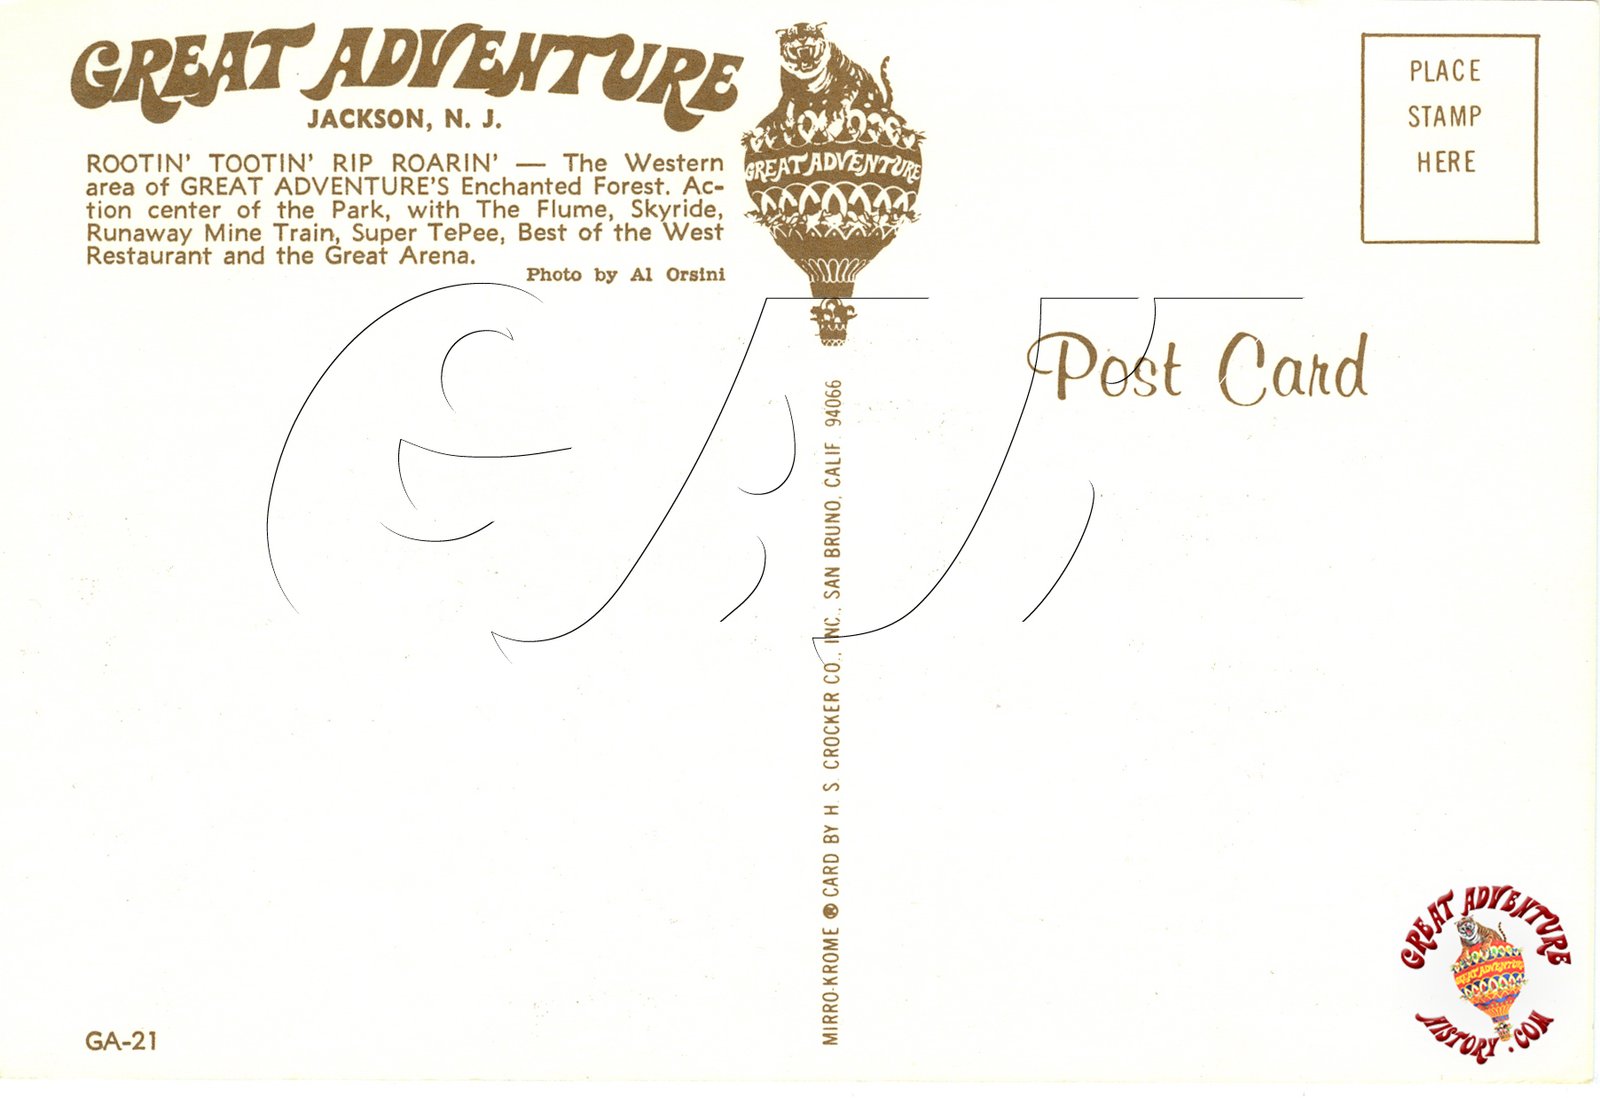 GREAT ADVENTURE
JACKSON, N. J.
ROOTIN' TOOTIN' RIP ROARIN' — The Western
area of GREAT ADVENTURE'S Enchanted Forest. Ac-
tion center of the Park, with The Flume, Skyride,
Runaway Mine Train, Super TePee, Best of the West
Restaurant and the Great Arena.
Photo by Al Orsini
GREAT ADVENTURE
PLACE
STAMP
HERE
Post Card
MIRRO-KROME ® CARD BY H. S. CROCKER CO., INC., SAN BRUNO, CALIF. 94066
GA-21
GREAT ADVENTURE
GREAT ADVENTURE
HISTORY.COM